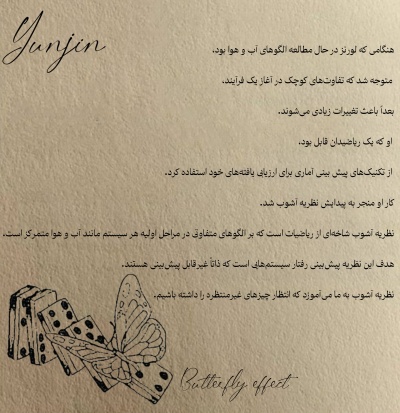 Yunjin
هنگامی که لورنز در حال مطالعه الگوهای آب و هوا بود،
متوجه شد که تفاوت‌های کوچک در آغاز یک فرآیند،
بعدآ باعث تغییرات زیادی می‌شوند.
او که یک ریاضیدان قابل بود،
از تکنیک‌های پیش بینی آماری برای ارزیابی یافته‌های خود استفاده کرد.
کار او منجر به پیدایش نظریه آشوب شد.
نظریه آشوب شاخه‌ای از ریاضیات است که بر الگوهای متفاوتی در مراحل اولیه هر سیستم مانند آب و هوا متمرکز است.
هدف این نظریه پیش‌بینی رفتار سیستم‌هایی است که ذاتاً غیرقابل پیش‌بینی هستند.
نظریه آشوب به ما می‌آموزد که انتظار چیزهای غیرمنتظره را داشته باشیم.
Butterfly effect